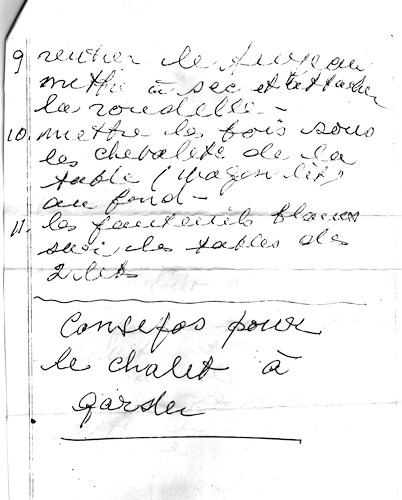 9 rentrer le tuyau
mettre à sec et attacher
la rondelle -
10. mettre les bois sous
les chevalets de la
table (wagon lit)
au fond -
11. les fauteuils blancs
sur les tables des
2 lits
Consefos pour
le chalet à
garder